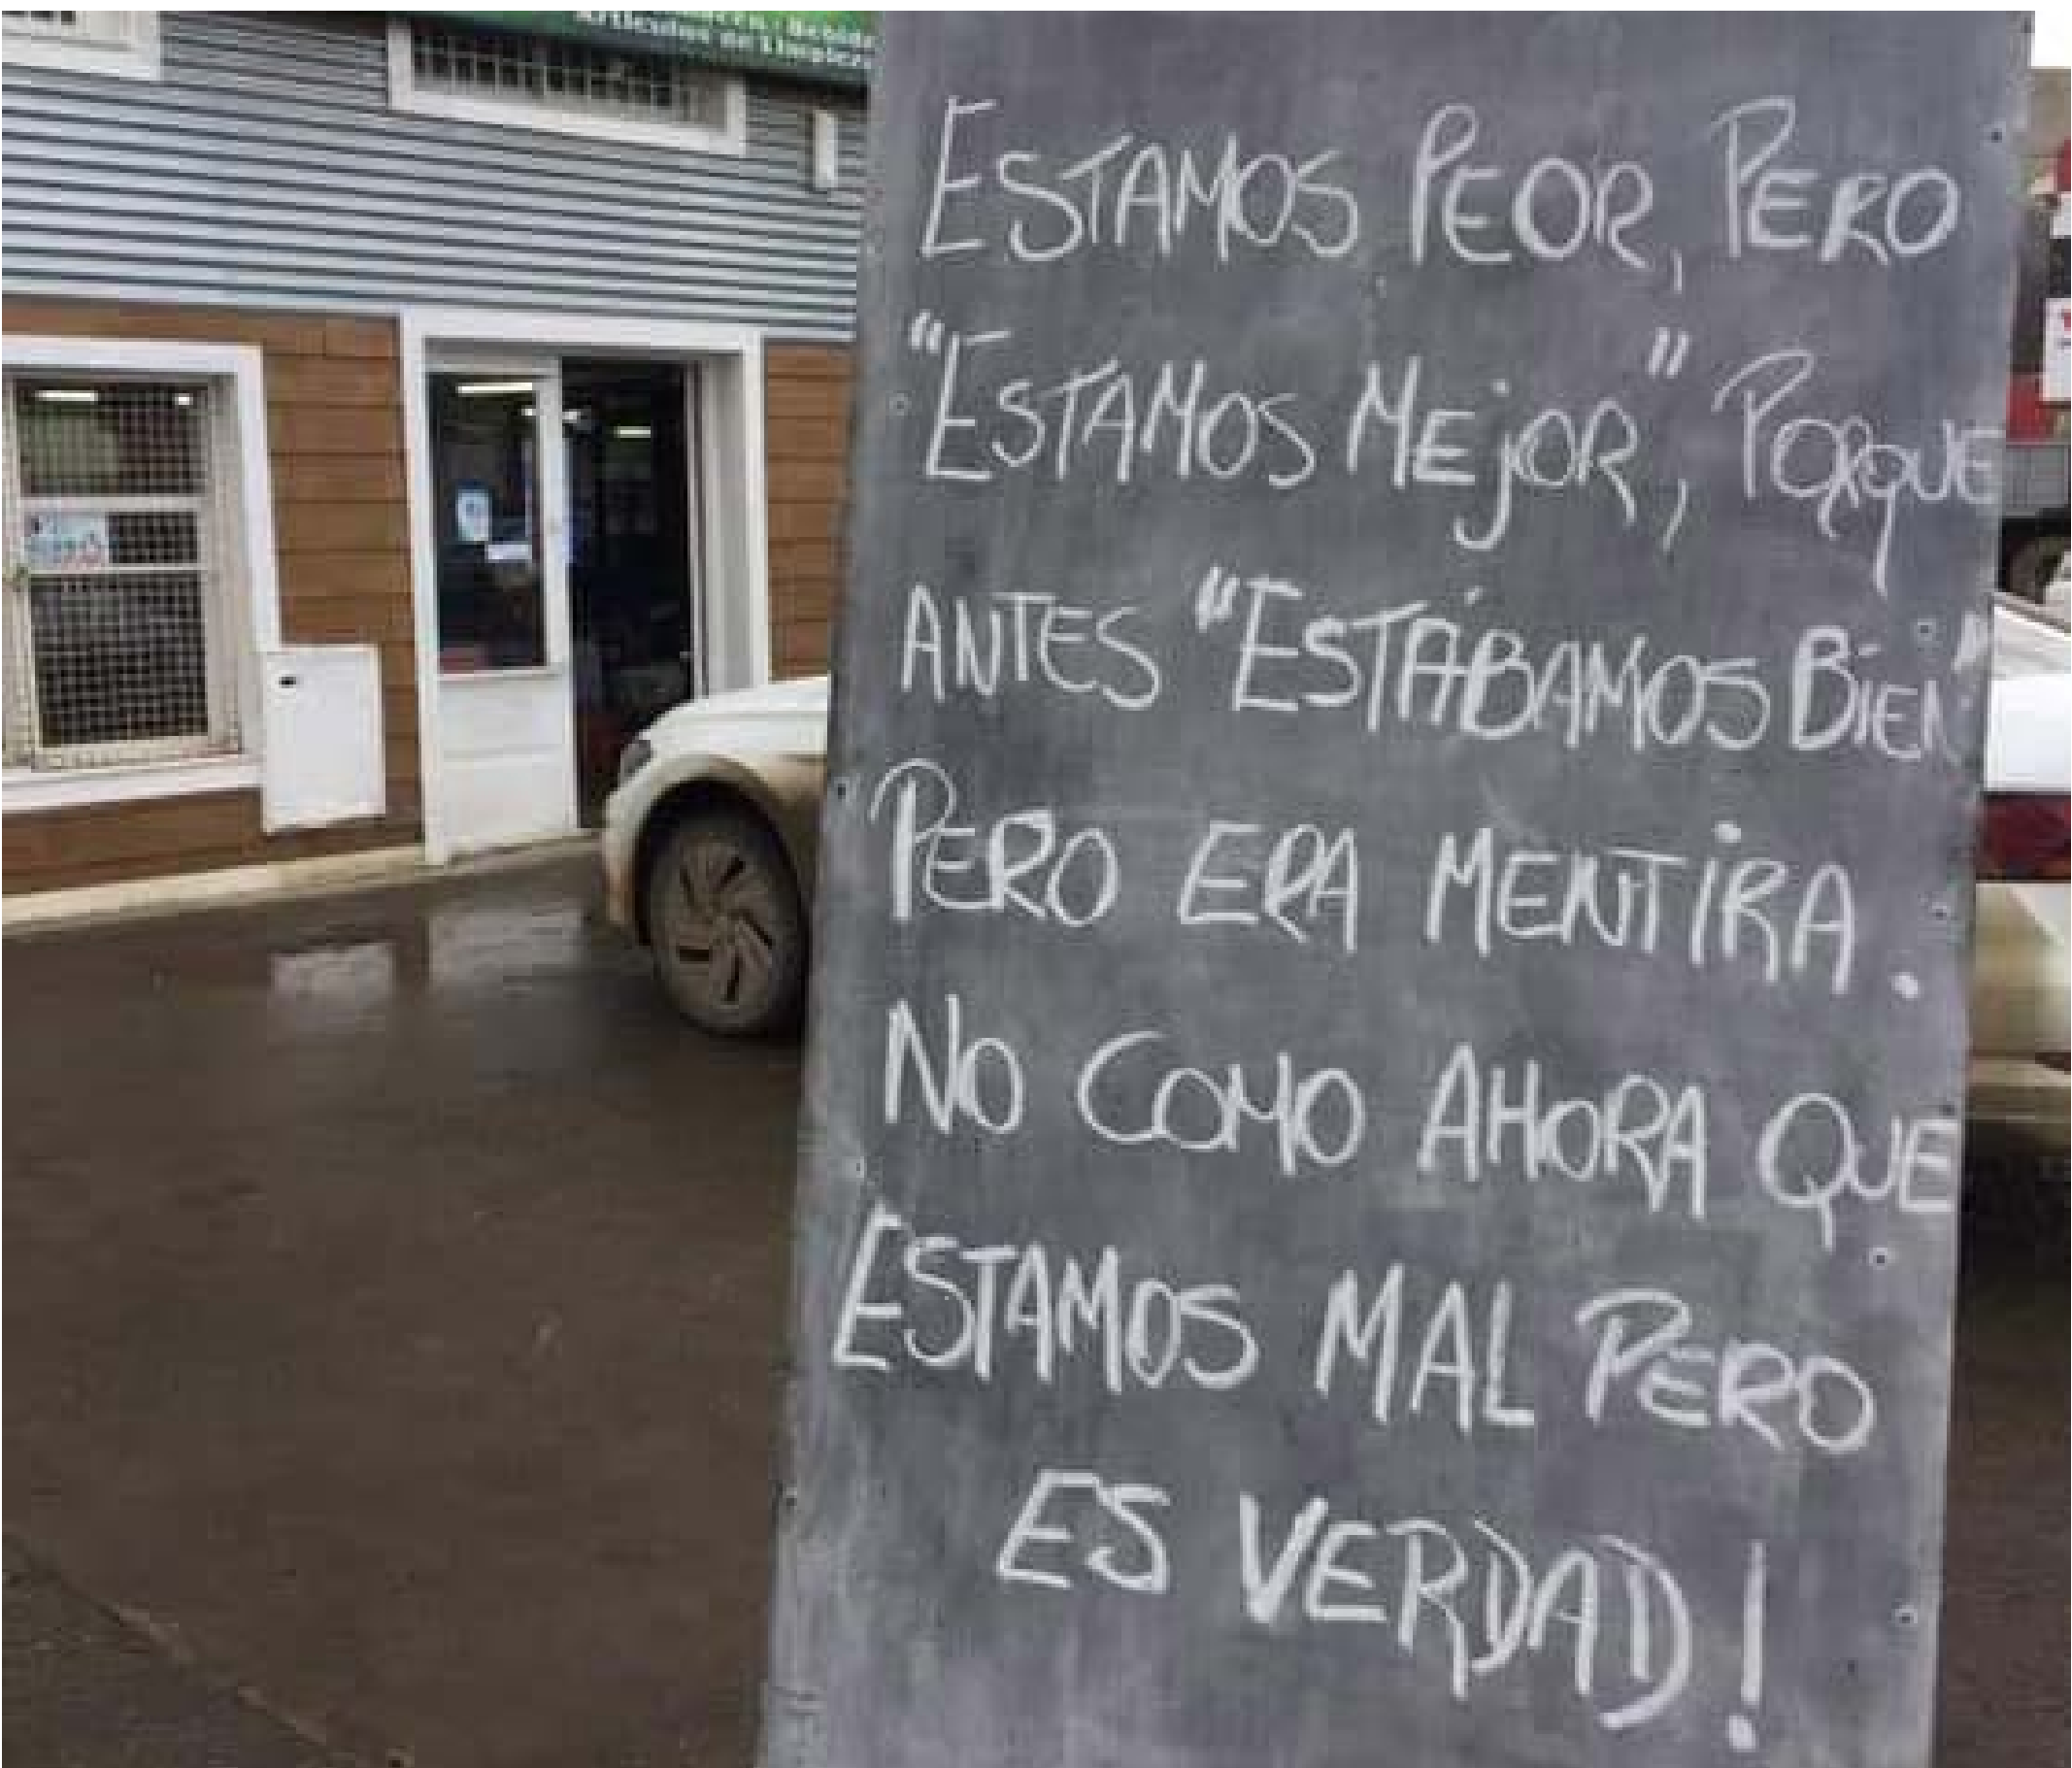 Artículos de Limpieza
ESTAMOS PEOR, PERO
"ESTAMOS MEJOR", PORQUE
ANTES "ESTÁBAMOS BIEN"
PERO ERA MENTIRA.
NO COMO AHORA QUE
ESTAMOS MAL PERO
ES VERDAD!